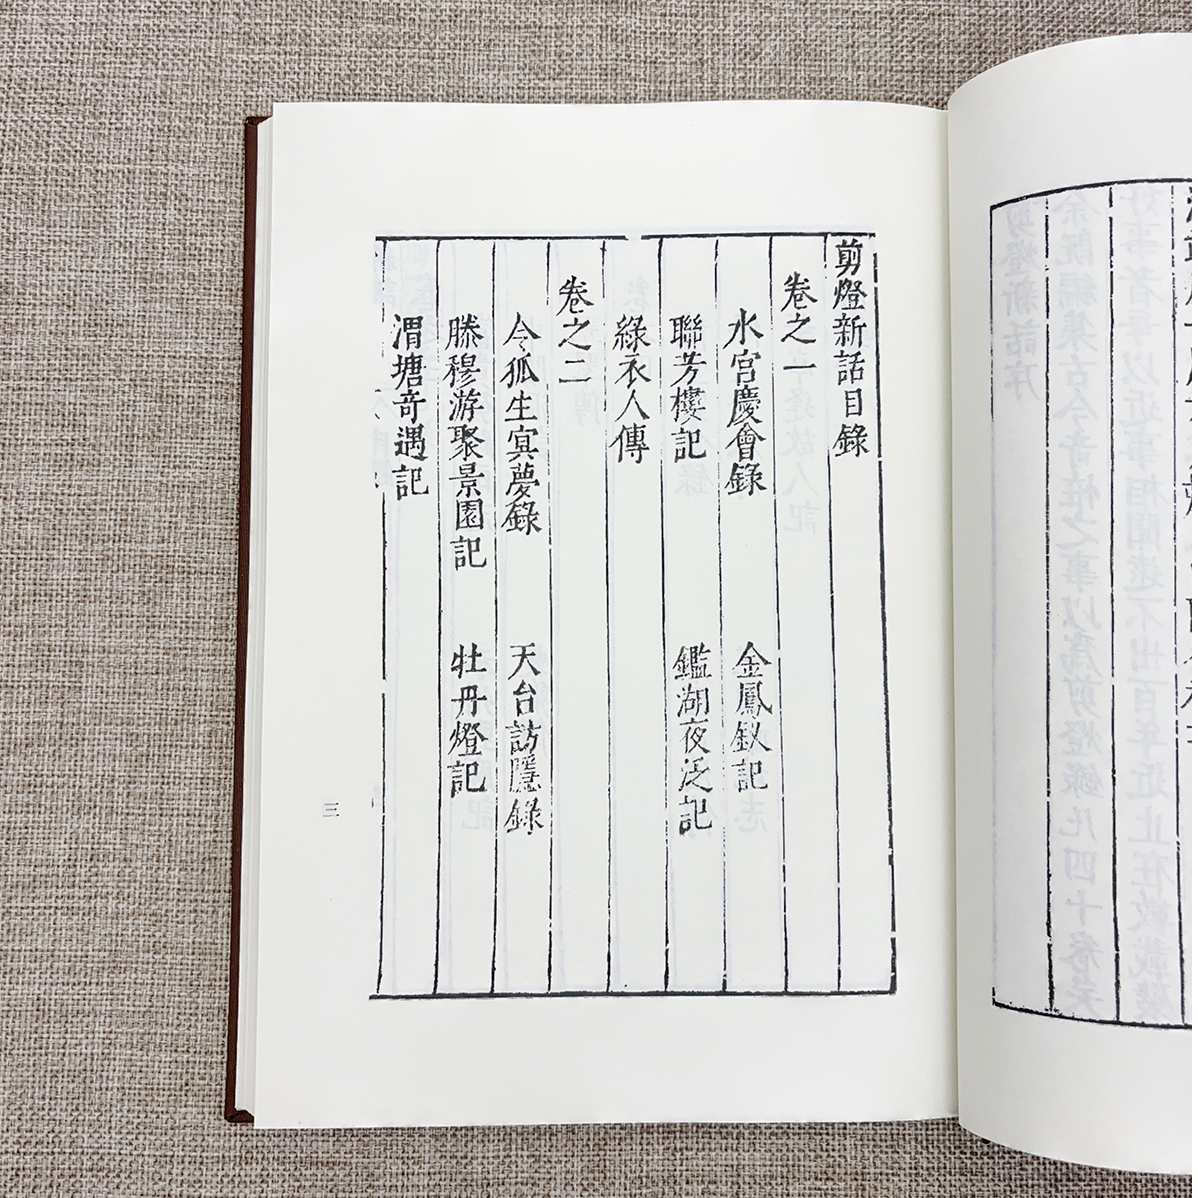 剪燈新話目錄
卷之一
水宮慶會錄 金鳳釵記
聯芳樓記 鑑湖夜泛記
綠衣人傳
卷之二
令狐生冥夢錄 天台訪隱錄
滕穆游聚景園記 牡丹燈記
渭塘奇遇記
三